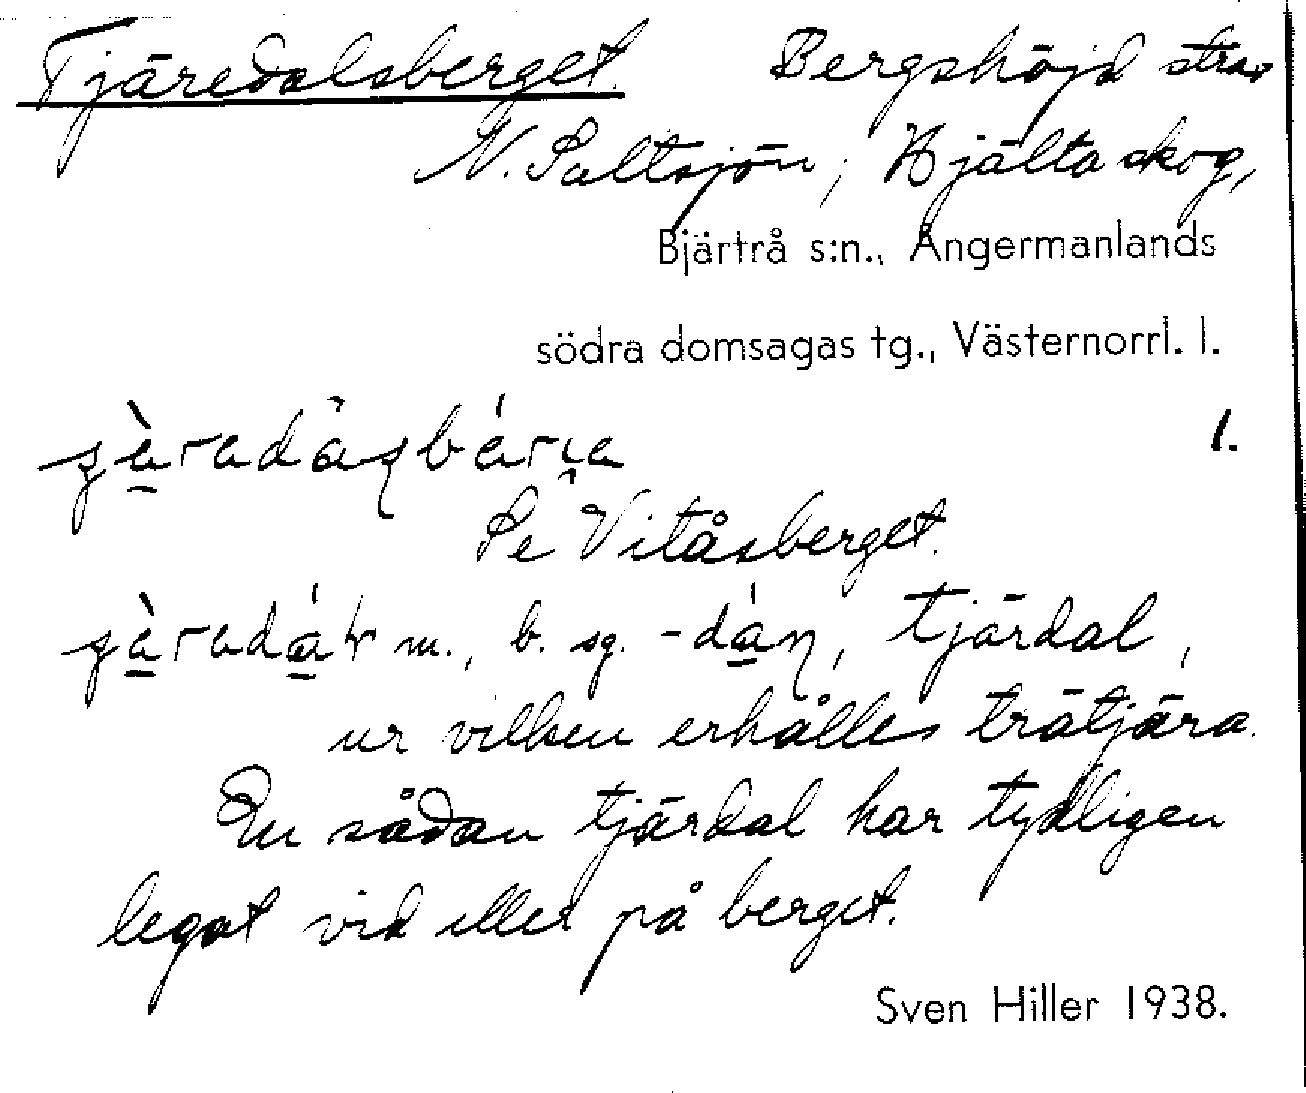 Tjäredalsberget. Bergshöjd strax
N. Saltsjön, Hjälta skog,
Bjärtrå s:n., Ångermanlands
södra domsagas tg., Västernorrl. l.
1.
Se Vitåsberget.
m., b. sg. tjärdal,
ur vilken erhålles trätjära.
En sådan tjärdal har tydligen
legat vid eller på berget.
Sven Hiller 1938.